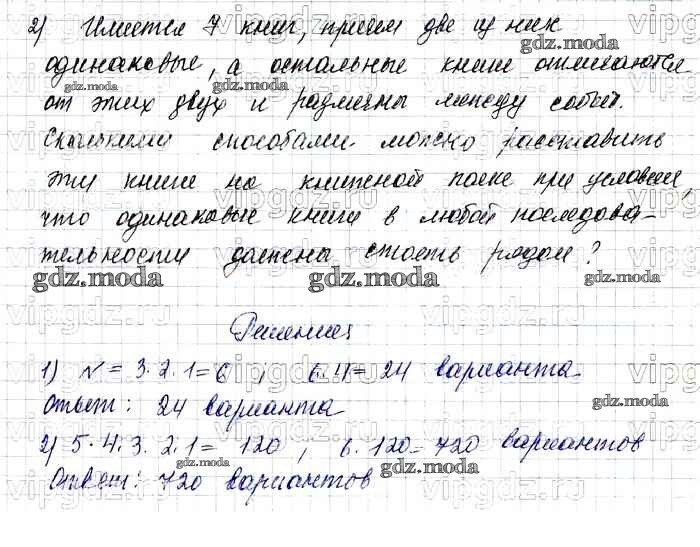 2) Имеется 7 книг, причем две из них
одинаковые, а остальные книги отличаются
от этих двух и различны между собой.
Сколькими способами можно расставить
эти книги на книжной полке при условии,
что одинаковые книги в любой последова-
тельности должны стоять рядом?
Решения
1) N = 3·2·1=6, 6·4=24 варианта
Ответ: 24 варианта
2) 5·4·3·2·1= 120, 6·120=720 вариантов
Ответ: 720 вариантов
gdz.moda
vipgdz.ru